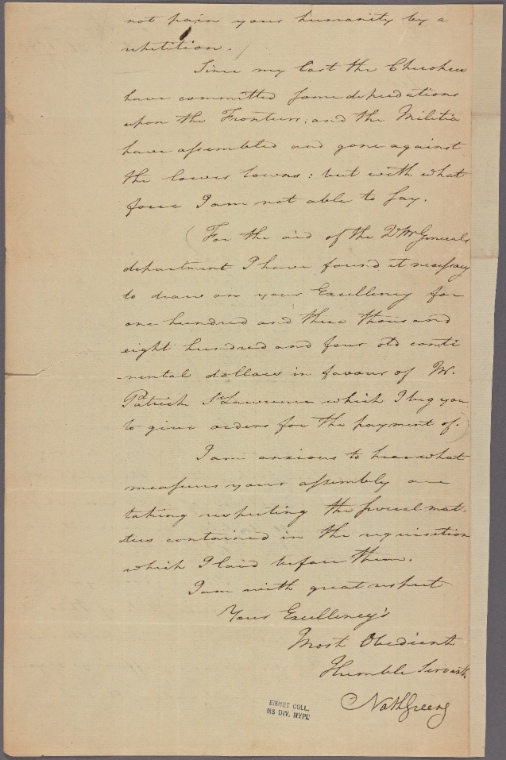 not pain your humanity by a
repetition.
Since my last the Cherokees
have committed some depredations
upon the Frontiers; and the Militia
have assembled and gone against
the lower towns: but with what
force I am not able to say.
(For the aid of the Qr Mr Generals
department I have found it necessary
to draw on your Excellency for
one hundred and three thousand
eight hundred and four old conti
-nental dollars in favour of Mr.
Patrick St Lawrence which I beg you
to give orders for the payment of.)
I am anxious to hear what
measures your assembly are
taking respecting the several mat-
ters contained in the requisition
which I laid before them.
I am with great respect
Your Excellency's
Most Obedient
Humble Servt.
NathGreene
EMMET COLL.
MS DIV. NYPL